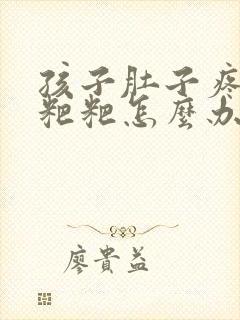 孩子肚子疼
粑粑怎麼办
廖貴益